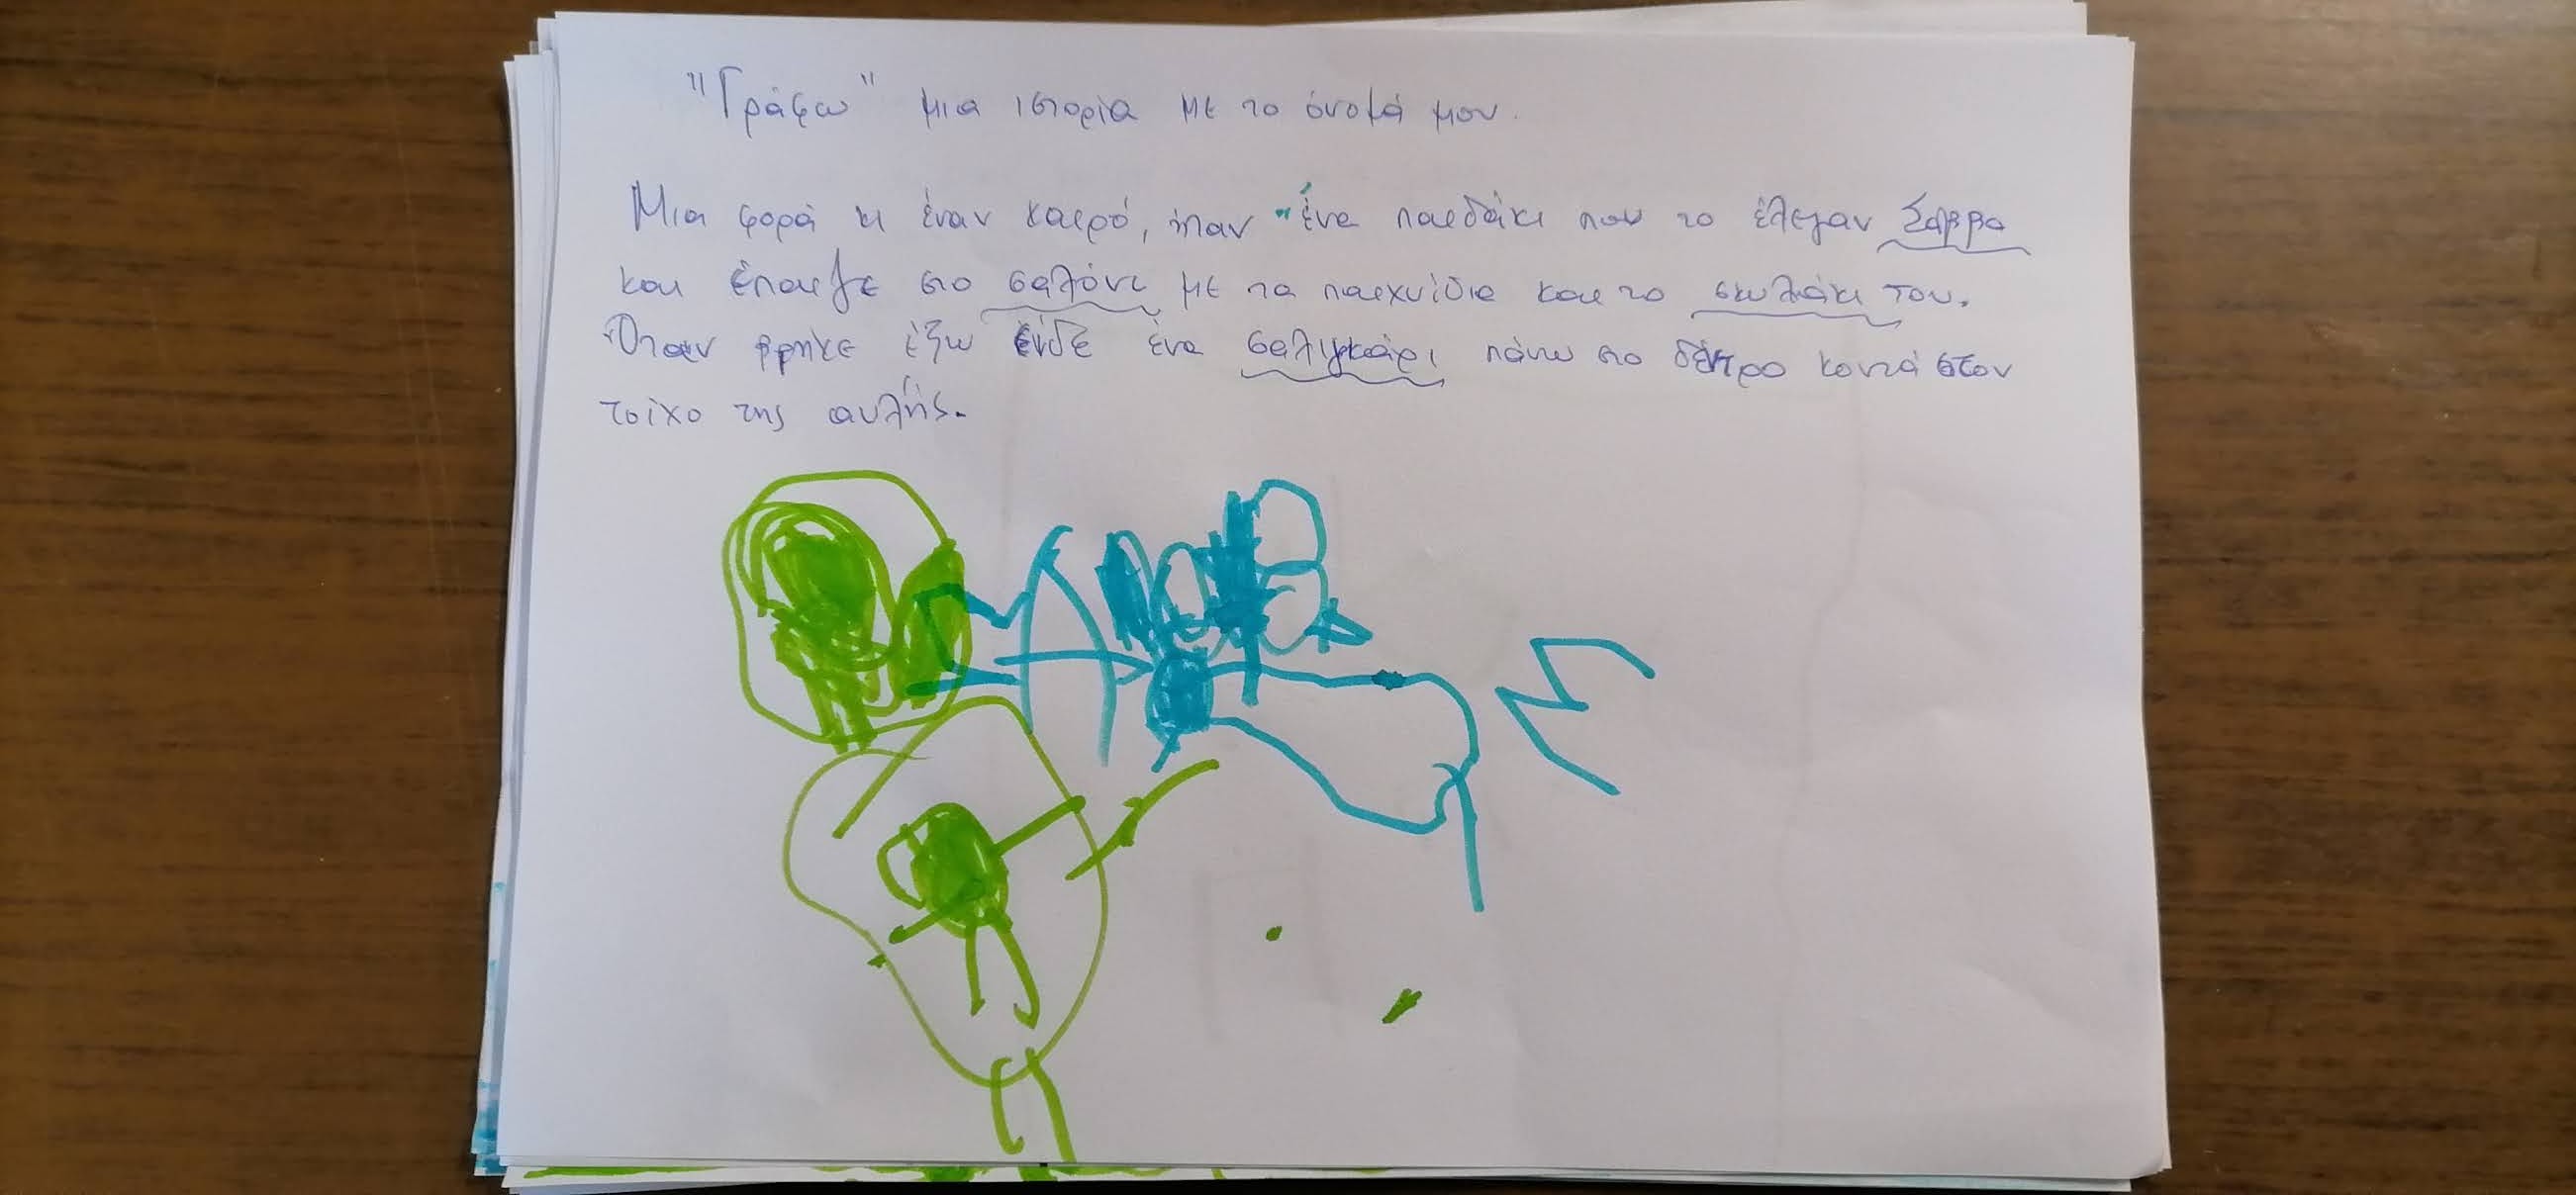 "Γράφω" μια ιστορία με το όνομά μου.
Μια φορά κι έναν καιρό, ήταν ένα παιδάκι που το έλεγαν Σάββα
και έπαιζε στο σαλόνι με τα παιχνίδια και το σκυλάκι του.
Όταν βρήκε έξω είδε ένα σαλιγκάρι πάνω στο δέντρο κοντά στον
τοίχο της αυλής.
Σ